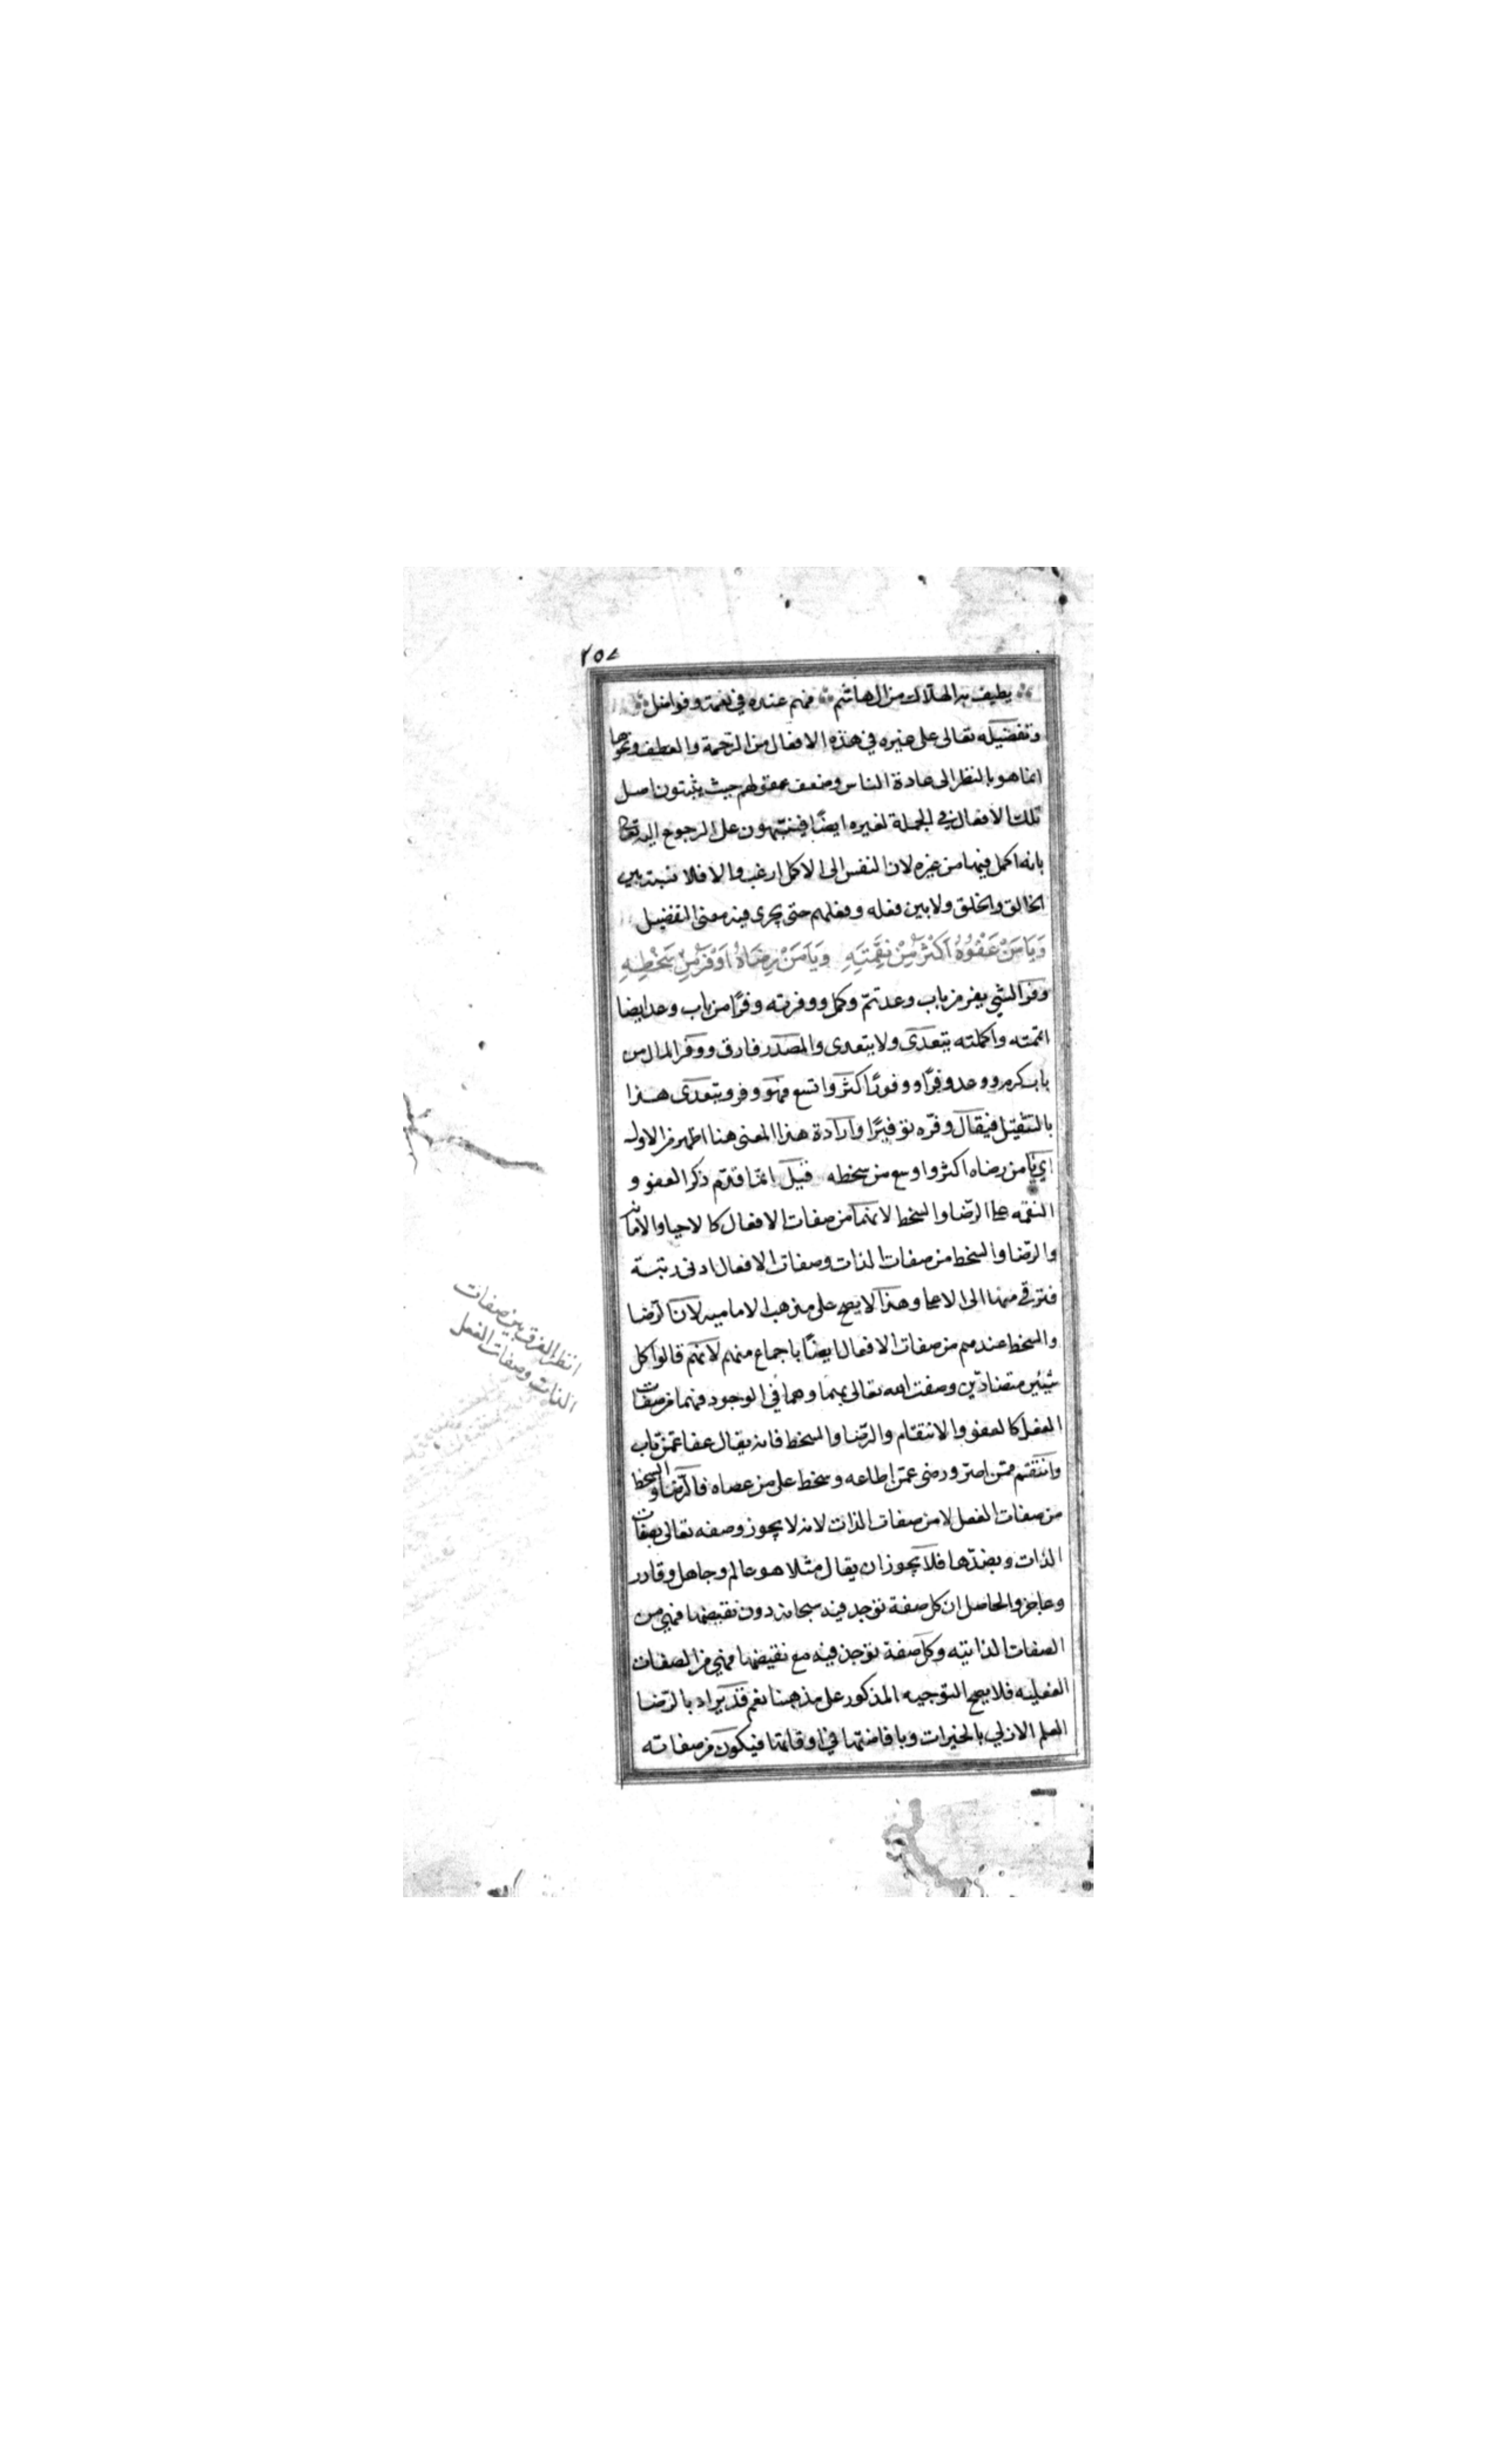 ٢٥٨
يطيف به الهلاك من ال هاشم فهم عنده في نعمة وفواضل
وتفضيله تعالى على غيره في هذه الافعال من الرحمة والعطف ونحوها
انما هو بالنظر الى عادة الناس وضعف عقولهم حيث يثبتون اصل
تلك الافعال في الجملة لغيره ايضًا فينبّهون على الرجوع اليه تعالى
بانه اكمل فيها من غيره لان النفس الى الاكمل ارغب والا فلا نسبة بين
الخالق والخلق ولا بين فعله وفعلهم حتى يجرى فيه معنى التفضيل
وَيَا مَنْ عَفْوُهُ اَكْثَرُ مِنْ نَقِمَتِهِ وَيَا مَنْ رِضَاهُ اَوْفَرُ مِنْ سَخَطِهِ
وفر الشي يفر من باب وعد تمّ وكمل ووفرته وفرًا من باب وعد ايضا
اتممته واكملته يتعدى ولا يتعدى والمصدر فارق ووفر المال من
باب كرم ووعد وفرًا ووفورًا اكثر واتسع فهو وفر ويتعدى هذا
بالتثقيل فيقال وفّره توفيرًا وارادة هذا المعنى هنا اظهر من الاول
اي يا من رضاه اكثر واوسع من سخطه قيل انما قدم ذكر العفو و
النقمه على الرّضا والسخط لانهما من صفات الافعال كالاحيا والاماتة
والرّضا والسخط من صفات الذات وصفات الافعال ادنى رتبة
فترقى منها الى الاعلى وهذا لا يصح على مذهب الاماميه لان الرّضا
والسخط عندهم من صفات الافعال ايضًا باجماع منهم لانهم قالوا كل
شيئين متضادّين وصفت الله تعالى بهما وهما في الوجود فهما من صفات
الفعل كالعفو والانتقام والرّضا والسخط فانه يقال عفا عمّن تاب
وانتقم ممّن اصرّ ورضى عمّن اطاعه وسخط على من عصاه فالرّضا والسخط
من صفات الفعل لا من صفات الذات لانه لا يجوز وصفه تعالى بصفات
الذات وبضدّها فلا يجوز ان يقال مثلا هو عالم وجاهل وقادر
وعاجز والحاصل ان كل صفة توجد فيه سبحانه دون نقيضها فهي من
الصفات الذاتيه وكل صفة توجد فيه مع نقيضها فهي من الصفات
الفعليه فلا يصح التوجيه المذكور على مذهبنا نعم قد يراد بالرّضا
العلم الازلي بالخيرات وبافاضتها في اوقاتها فيكون من صفاته
انظر الفرق بين صفات
الذات وصفات الفعل